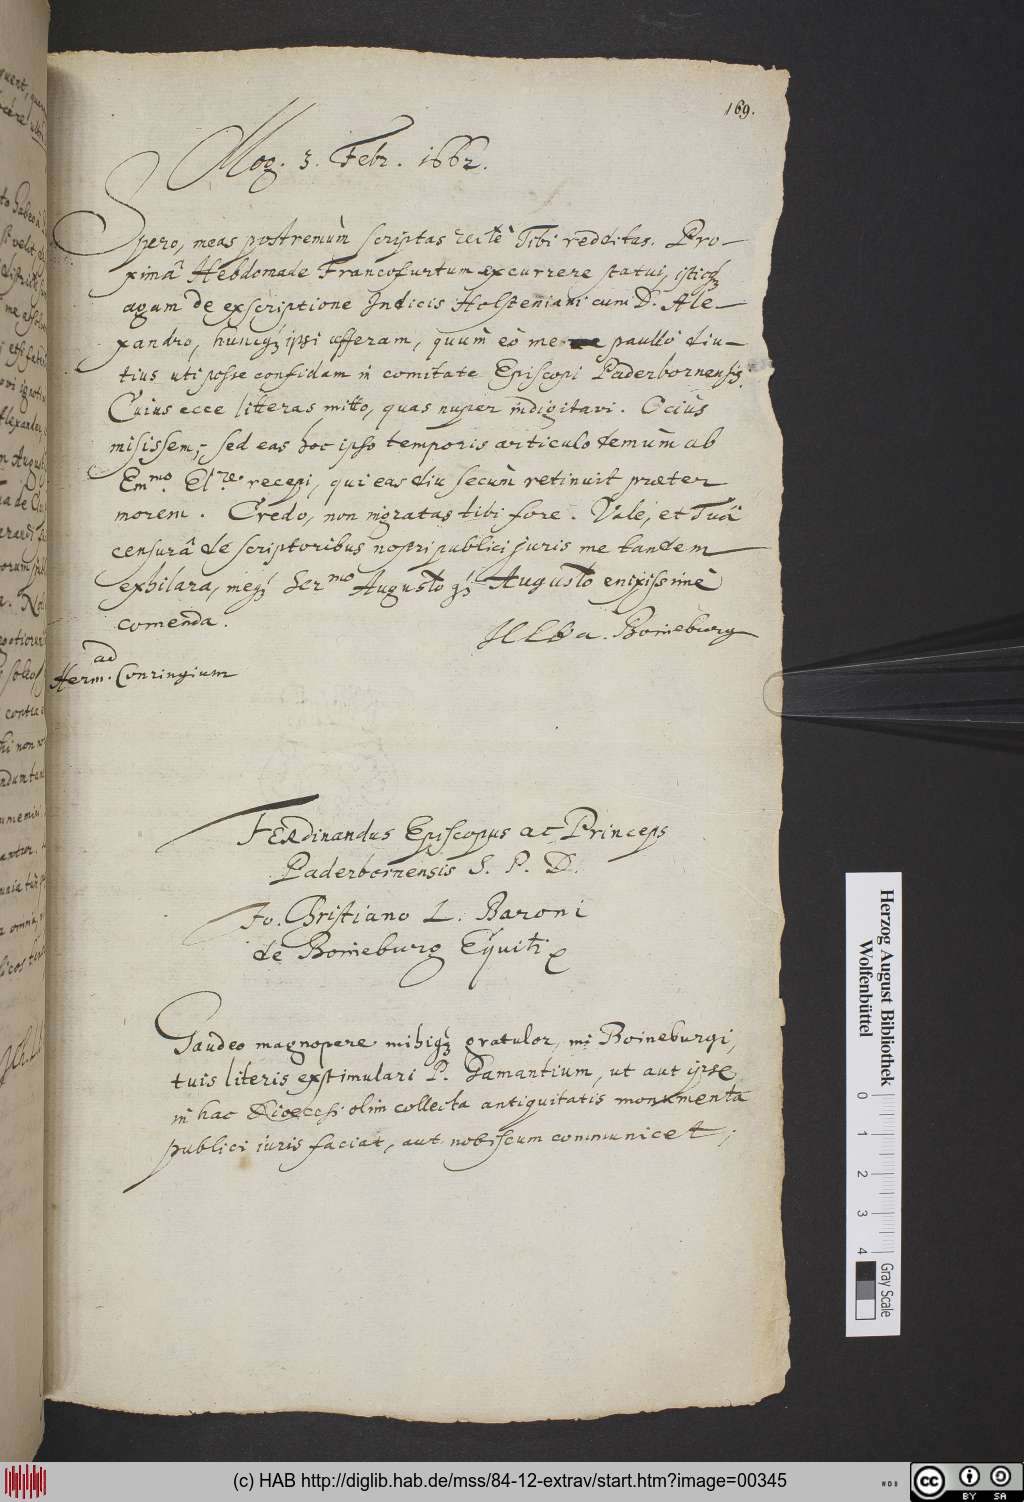 169.
Mog. 3. Febr. 1662.
Spero, meas postremùm scriptas rectè Tibi redditas. Pro-
ximâ Hebdomade Francofurtum excurrere statui, isticq;
agam de exscriptione Indicis Holsteniani cum D. Ale-
xandro, huncq; ipsi offeram, quum eò me paullò diu-
tius uti posse confidam in comitate Episcopi Paderbornensis.
Cuius ecce litteras mitto, quas nuper indigitavi. Ociùs
misissem; sed eas hoc ipso temporis articulo demùm ab
Emmo. Elre. recepi, qui eas diu secùm retinuit præter
morem. Credo, non ingratas tibi fore. Vale, et Tuâ
censurâ de scriptoribus nostri publici juris me tandem
exhilara, meq; Sermo Augusto q; Augusto enixissimè
comenda.
Boineburg
ad
Herm. Conringium
FERdinandus Episcopus ac Princeps
Paderbornensis S. P. D.
Jo. Christiano L. Baroni
de Boineburg Equiti
Gaudeo magnopere mihiq; gratulor, mi Boineburgi,
tuis literis exstimulari P. Gamantium, ut aut ipse
in hac Dioecesi olim collecta antiquitatis monumenta
publici iuris faciat, aut nobiscum communicet;
Herzog August Bibliothek
Wolfenbüttel
0 1 2 3 4
Gray Scale
(c) HAB http://diglib.hab.de/mss/84-12-extrav/start.htm?image=00345
cc BY SA